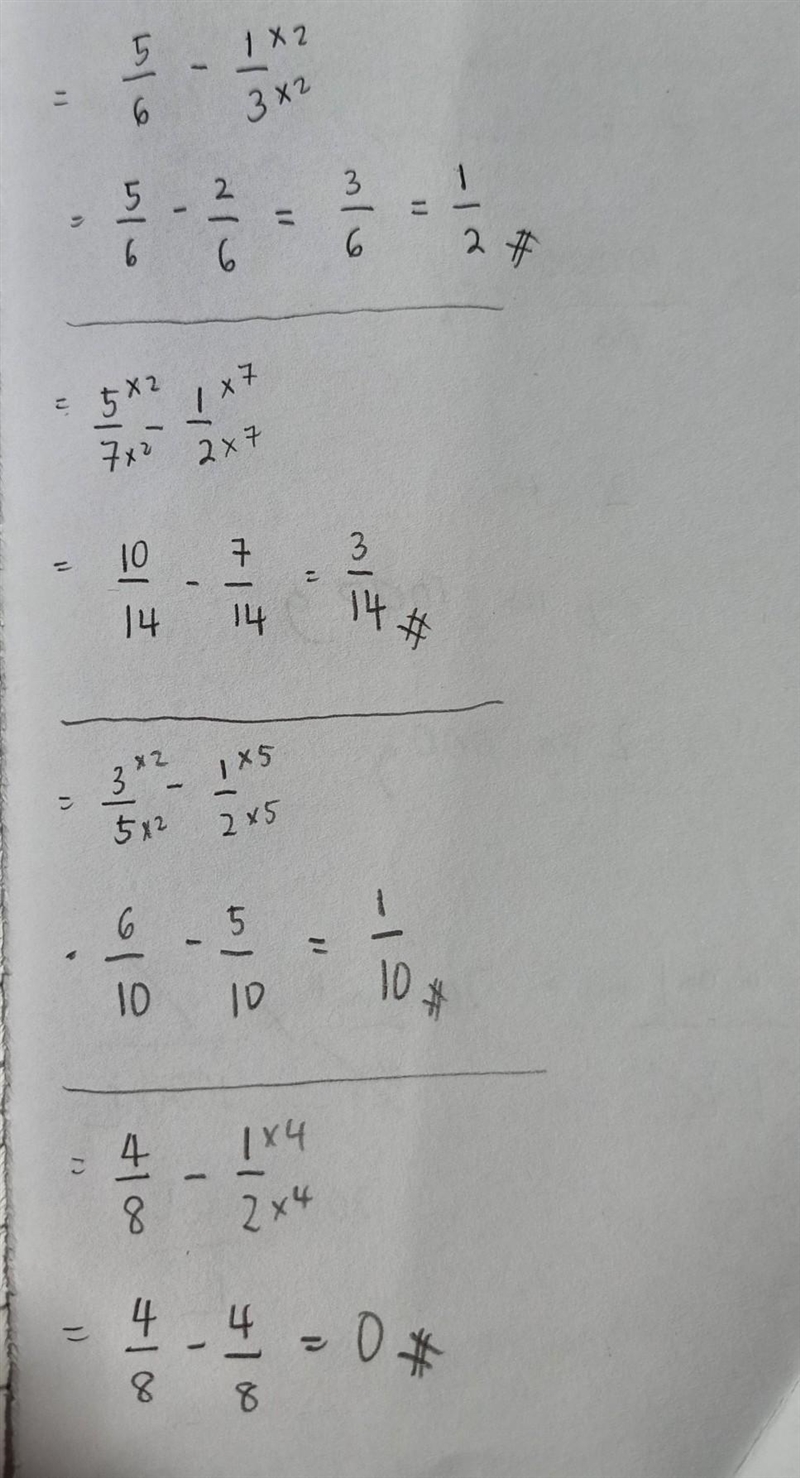 = 5/6 - 1×2/3×2
= 5/6 - 2/6 = 3/6 = 1/2 #
= 5×2/7×2 - 1×7/2×7
= 10/14 - 7/14 = 3/14 #
= 3×2/5×2 - 1×5/2×5
. 6/10 - 5/10 = 1/10 #
= 4/8 - 1×4/2×4
= 4/8 - 4/8 = 0 #